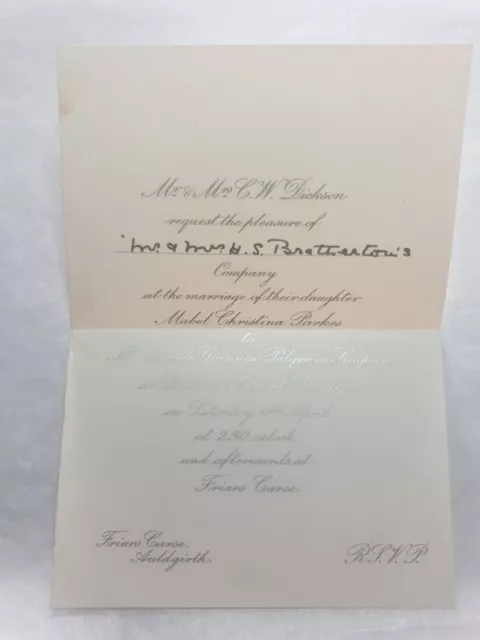 Mr. & Mrs C. W. Dickson
request the pleasure of
Mr. & Mrs. H. S. Bretherton's
Company
at the marriage of their daughter
Mabel Christina Parkes
to
Palgrave Simpson
at
on Saturday April
at 2.30 o'clock
and afterwards at
Friars Carse.
Friars Carse,
Auldgirth.
R.S.V.P.